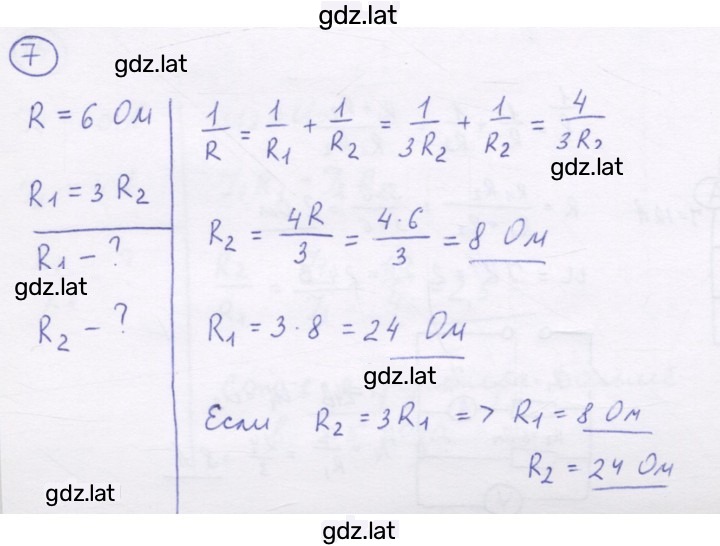 gdz.lat
7
gdz.lat
R = 6 Ом
R₁ = 3 R₂
R₁ - ?
gdz.lat
R₂ - ?
1/R = 1/R₁ + 1/R₂ = 1/3R₂ + 1/R₂ = 4/3R₂
gdz.lat
R₂ = 4R/3 = 4·6/3 = 8 Ом
R₁ = 3·8 = 24 Ом
gdz.lat
Если R₂ = 3R₁ => R₁ = 8 Ом
R₂ = 24 Ом
gdz.lat
gdz.lat